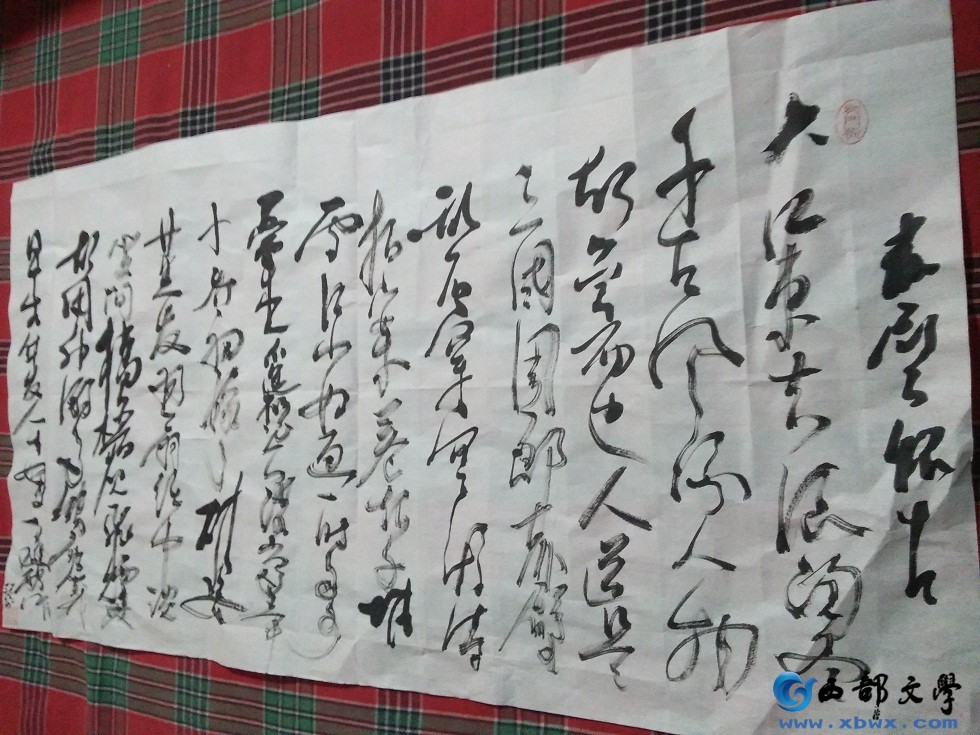 赤壁怀古
大江東去浪淘尽
千古风流人物
故垒西边人道是
三國周郎赤壁
乱石穿空惊涛
拍岸卷起千堆
雪江山如画一时多少
豪杰遥想公瑾当年
小乔初嫁了雄姿
英发羽扇纶巾谈
笑间樯橹灰飞烟灭
故国神游多情应笑
早生华发人生
西部文學
www.xbwx.com